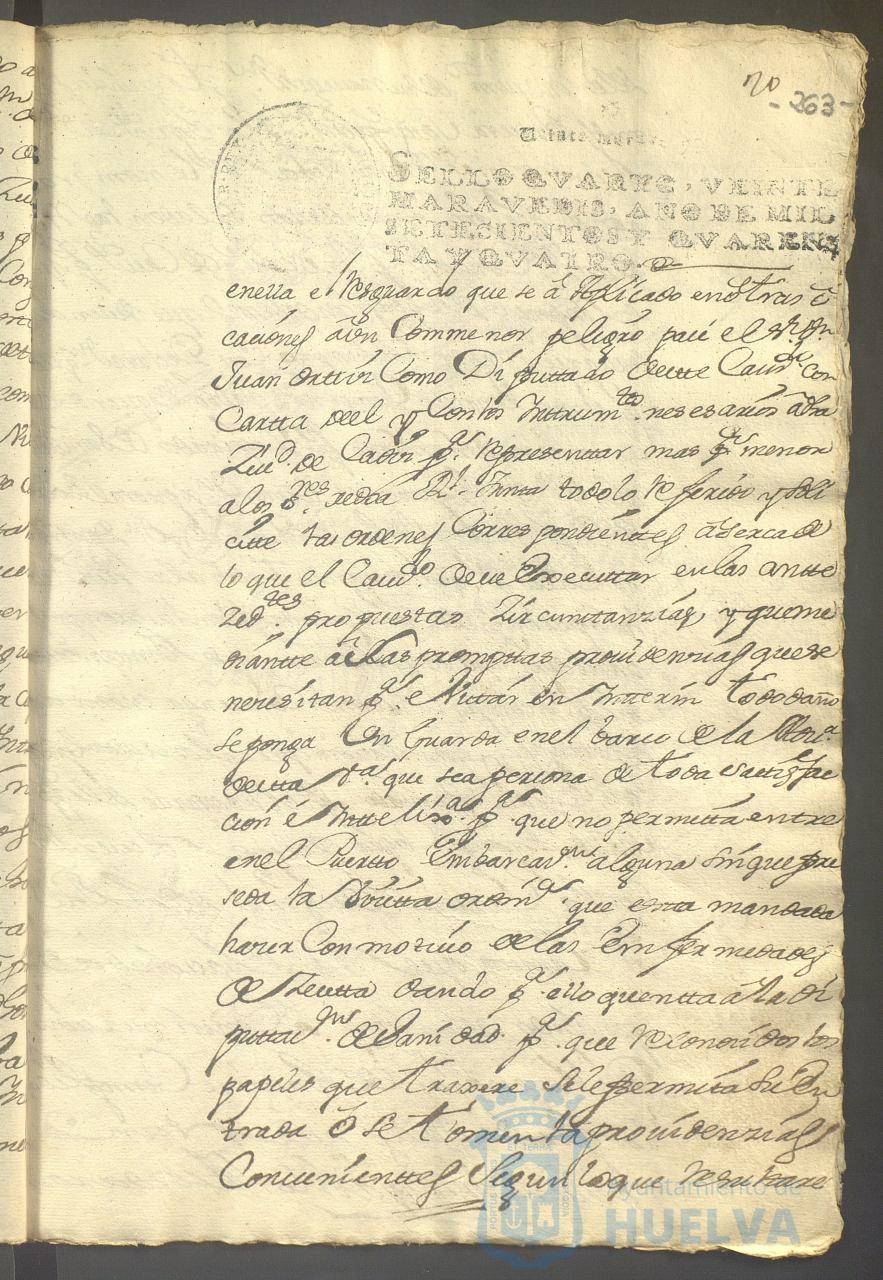 20
- 263 -
Veinte marav.
SELLO QVARTO, VEINTE
MARAVEDIS, AÑO DE MIL
SETECIENTOS Y QVAREN-
TA Y QVATRO.
enella el Resguardo que se á aplicado en otras o
caciones aun Com menor peligro pase el Sr. Dn.
Juan Como Diputtado deste Cauildo con
Cartta deel y Con los Insttrumtos. nesesarios a la
Ziud. de Cadiz pa. Representtar mas pr. menor
a los Sres. dedha Rl. Juntta todo lo Referido y soli
citte las ordenes Correspondienttes aserca de
lo que el Cauildo. deue Executtar en las antte
Zedtes. propuesttas Zircunsttanzias, y que me
diantte a las prompttas prouidenzias que se
nesesitan pa. euittar en Intterin todo daño
se ponga Un Guarda en el barco de la
destta Va. que sea persona de toda sattisfac
cion é Inttelixa. pa. que no permitta entre
en el Puertto Embarcaon. alguna sin que pre
seda la Visitta ordina. que esta mandada
hazer Con mottiuo de las Emfermedades
de Zeutta dando pa. ello quentta a la Di
puttaon. de Sanidad pa. que Reconosidos los
papeles que traxere se le permitta su En
trada ó se tomen las prouidenzias
Conuenienttes Segun lo que Resulttare
Ayuntamiento de
HUELVA